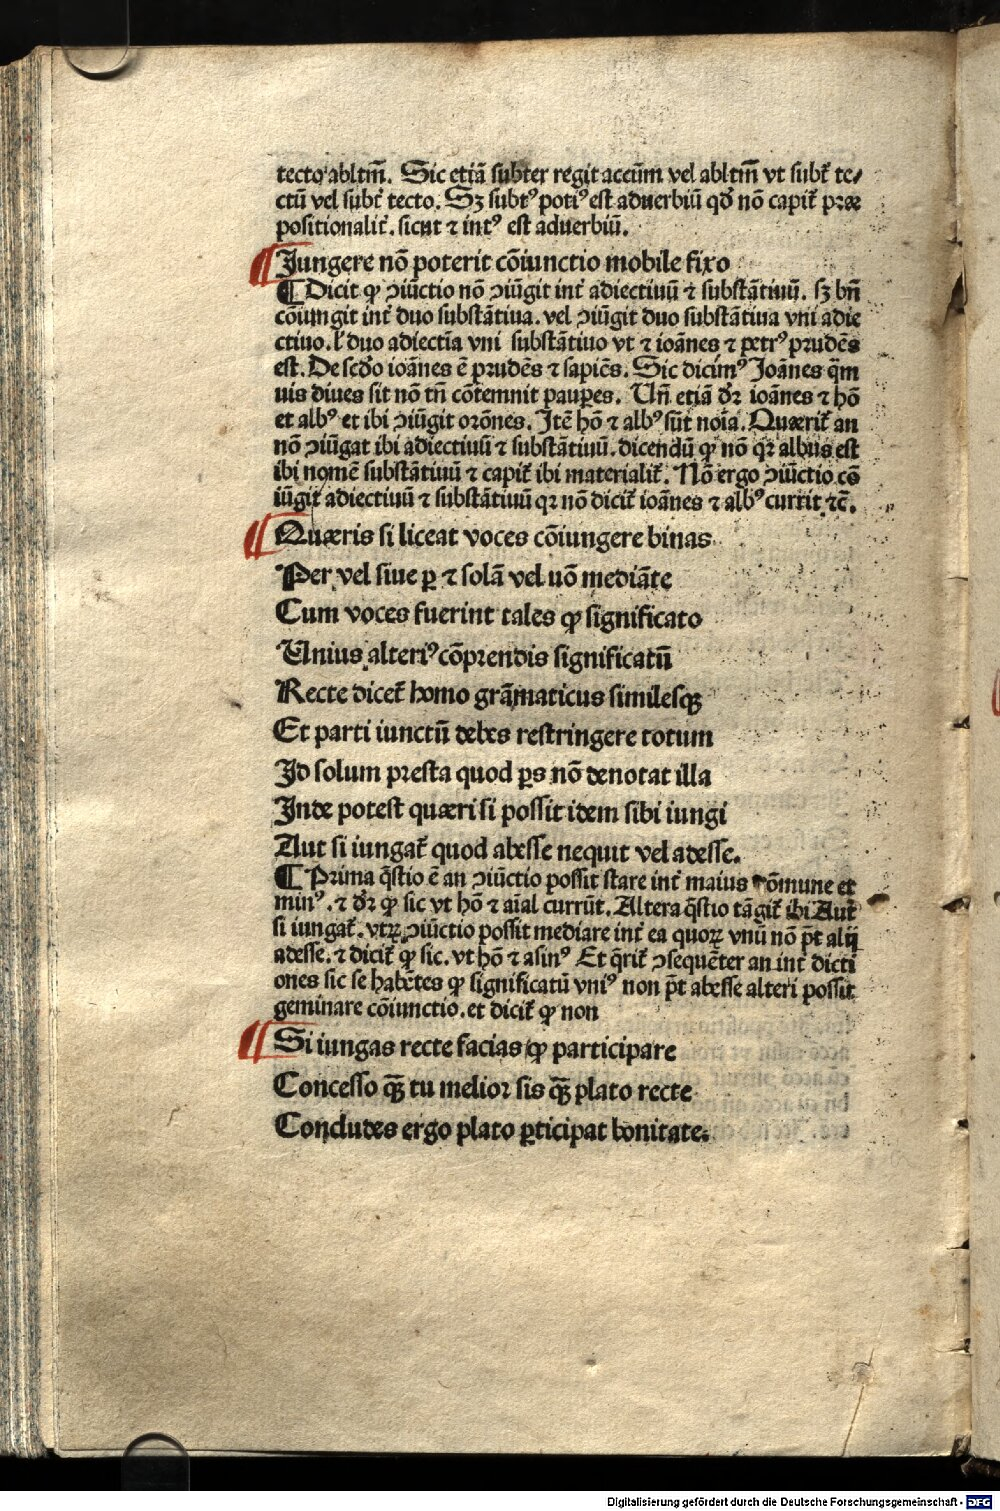 tecto abltm̄. Sic etiā subter regit accūm vel abltm̄ vt subt̄ te⸗
ctū vel subt̄ tecto. Sꝫ subtꝰ potiꝰ est aduerbiū qd̄ nō capit̄ præ
positionalit̄. sicut ⁊ intꝰ est aduerbiū.
Jungere nō poterit cōiunctio mobile fixo
¶ Dicit ꝙ ↄiūctio nō ↄiūgit int̄ adiectiuū ⁊ substātiuū. sꝫ bn̄
cōiungit int̄ duo substātiua. vel ↄiūgit duo substātiua vni adie
ctiuo. l̄ duo adiectia vni substātiuo vt ⁊ ioānes ⁊ petrꝰ prudēs
est. De scd̄o ioānes ē prudēs ⁊ sapiēs. Sic dicimꝰ Joānes q̄m
uis diues sit nō tn̄ cōtemnit pauꝑes. Un̄ etiā dr̄ ioānes ⁊ hō
et albꝰ et ibi ↄiūgit orōnes. Jtē hō ⁊ albꝰ sūt noīa. Quærit̄ an
nō ↄiūgat ibi adiectiuū ⁊ substātiuū. dicendū ꝙ nō qꝛ albus est
ibi nomē substātiuū ⁊ capit̄ ibi materialit̄. Nō ergo ↄiūctio cō
iūgit adiectiuū ⁊ substātiuū qꝛ nō dicit̄ ioānes ⁊ albꝰ currit ⁊c̄.
Quæris si liceat voces cōiungere binas
Per vel siue ꝑ ⁊ solā vel nō mediāte
Cum voces fuerint tales ꝙ significato
Unius alteriꝰ cōprendis significatū
Recte dicet̄ homo grāmaticus similesqꝫ
Et parti iunctū debes restringere totum
Jd solum presta quod ꝑs nō denotat illa
Jnde potest quæri si possit idem sibi iungi
Aut si iungat̄ quod abesse nequit vel adesse.
¶ Prima q̄stio ē an ↄiūctio possit stare int̄ maius cōmune et
minꝰ. ⁊ dr̄ ꝙ sic vt hō ⁊ aīal currūt. Altera q̄stio tāgit̄ ibi Aut
si iungat̄. vtꝝ ↄiūctio possit mediare int̄ ea quoꝝ vnū nō pt̄ alij
adesse. ⁊ dicit̄ ꝙ sic. vt hō ⁊ asinꝰ Et q̄rit̄ ↄsequēter an int̄ dicti
ones sic se habētes ꝙ significatū vniꝰ non pt̄ abesse alteri possit
geminare cōiunctio. et dicit̄ ꝙ non
Si iungas recte facias ꝙ participare
Concesso qꝫ tu melior sis qꝫ plato recte
Concludes ergo plato ꝑticipat bonitate.
Digitalisierung gefördert durch die Deutsche Forschungsgemeinschaft - DFG